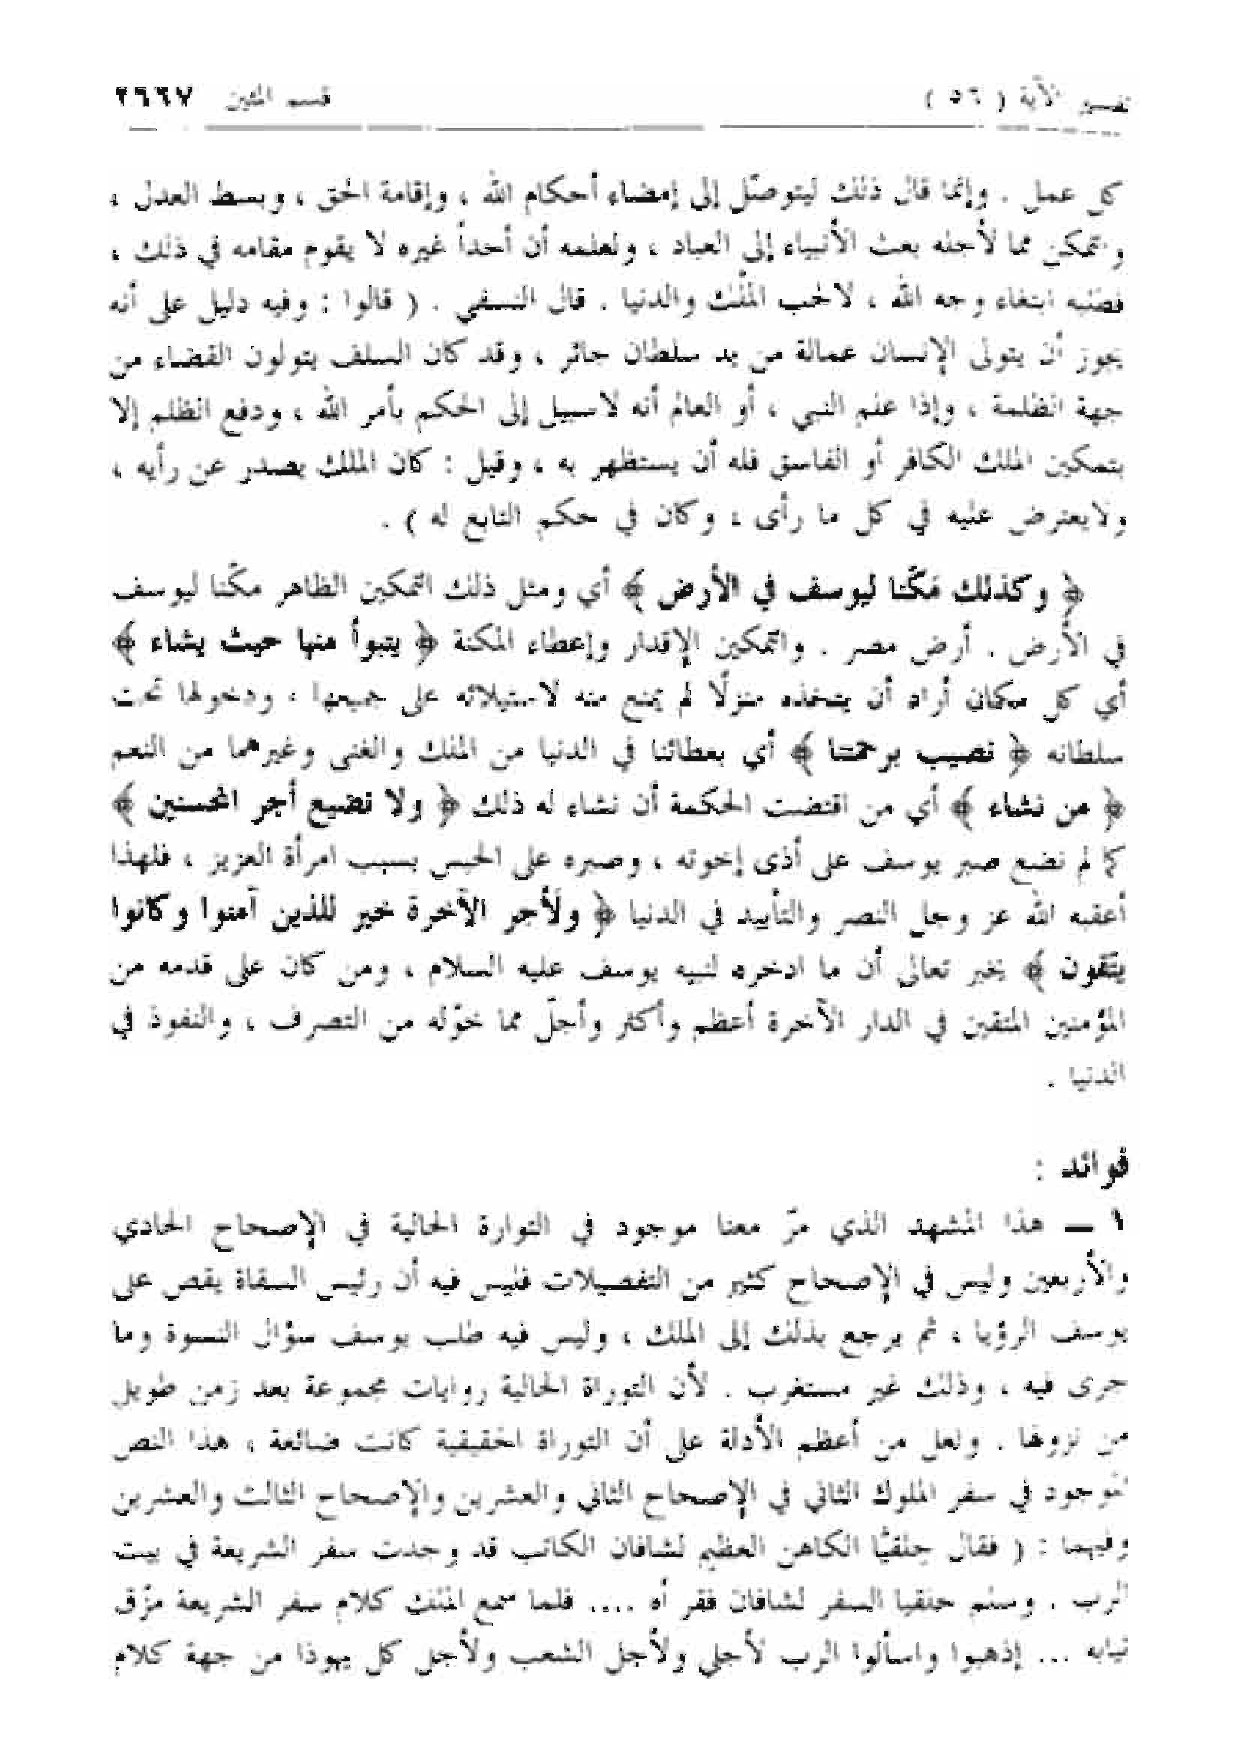 تفسير الآية ( ٥٦ ) قسم المئين ٢٦٦٧
كل عمل . وإنما قال ذلك ليتوصّل إلى إمضاء أحكام الله ، وإقامة الحق ، وبسط العدل ،
وتمكن مما لأجله بعث الأنبياء إلى العباد ، ولعلمه أن أحداً غيره لا يقوم مقامه في ذلك ،
فطلبه ابتغاء وجه الله ، لا لحب الملك والدنيا . قال النسفي . ( قالوا : وفيه دليل على أنه
يجوز أن يتولى الإنسان عمالة من يد سلطان جائر ، وقد كان السلف يتولون القضاء من
جهة الظلمة ، وإذا علم النبي ، أو العالم أنه لا سبيل إلى الحكم بأمر الله ، ودفع الظلم إلا
بتمكين الملك الكافر أو الفاسق فله أن يستظهر به ، وقيل : كان الملك يصدر عن رأيه ،
ولا يعترض عليه في كل ما رأى ، وكان في حكم التابع له ) .
﴿ وكذلك مَكّنا ليوسف في الأرض ﴾ أي ومثل ذلك التمكين الظاهر مكّنا ليوسف
في الأرض . أرض مصر . والتمكين الإقدار وإعطاء المكنة ﴿ يتبوأ منها حيث يشاء ﴾
أي كل مكان أراد أن يتخذه منزلًا لم يمنع منه لاستيلائه على جميعها ، ودخولها تحت
سلطانه ﴿ نصيب برحمتنا ﴾ أي بعطائنا في الدنيا من الملك والغنى وغيرهما من النعم
﴿ من نشاء ﴾ أي من اقتضت الحكمة أن نشاء له ذلك ﴿ ولا نضيع أجر المحسنين ﴾
كما لم نضع صبر يوسف على أذى إخوته ، وصبره على الحبس بسبب امرأة العزيز ، فلهذا
أعقبه الله عز وجل النصر والتأييد في الدنيا ﴿ ولَأجر الآخرة خير للذين آمنوا وكانوا
يتّقون ﴾ يخبر تعالى أن ما ادخره لنبيه يوسف عليه السلام ، ومن كان على قدمه من
المؤمنين المتقين في الدار الآخرة أعظم وأكثر وأجلّ مما خوّله من التصرف ، والنفوذ في
الدنيا .
فوائد :
١ ــ هذا المشهد الذي مرّ معنا موجود في التوارة الحالية في الإصحاح الحادي
والأربعين وليس في الإصحاح كثير من التفصيلات فليس فيه أن رئيس السقاة يقص على
يوسف الرؤيا ، ثم يرجع بذلك إلى الملك ، وليس فيه طلب يوسف سؤال النسوة وما
جرى فيه ، وذلك غير مستغرب . لأن التوراة الحالية روايات مجموعة بعد زمن طويل
من نزولها . ولعل من أعظم الأدلة على أن التوراة الحقيقية كانت ضائعة ، هذا النص
الموجود في سفر الملوك الثاني في الإصحاح الثاني والعشرين والإصحاح الثالث والعشرين
وفيهما : ( فقال حلقيّا الكاهن العظيم لشافان الكاتب قد وجدت سفر الشريعة في بيت
الرب . وسلم حلقيا السفر لشافان فقرأه .... فلما سمع الملك كلام سفر الشريعة مزّق
ثيابه ... إذهبوا واسألوا الرب لأجلي ولأجل الشعب ولأجل كل يهوذا من جهة كلام